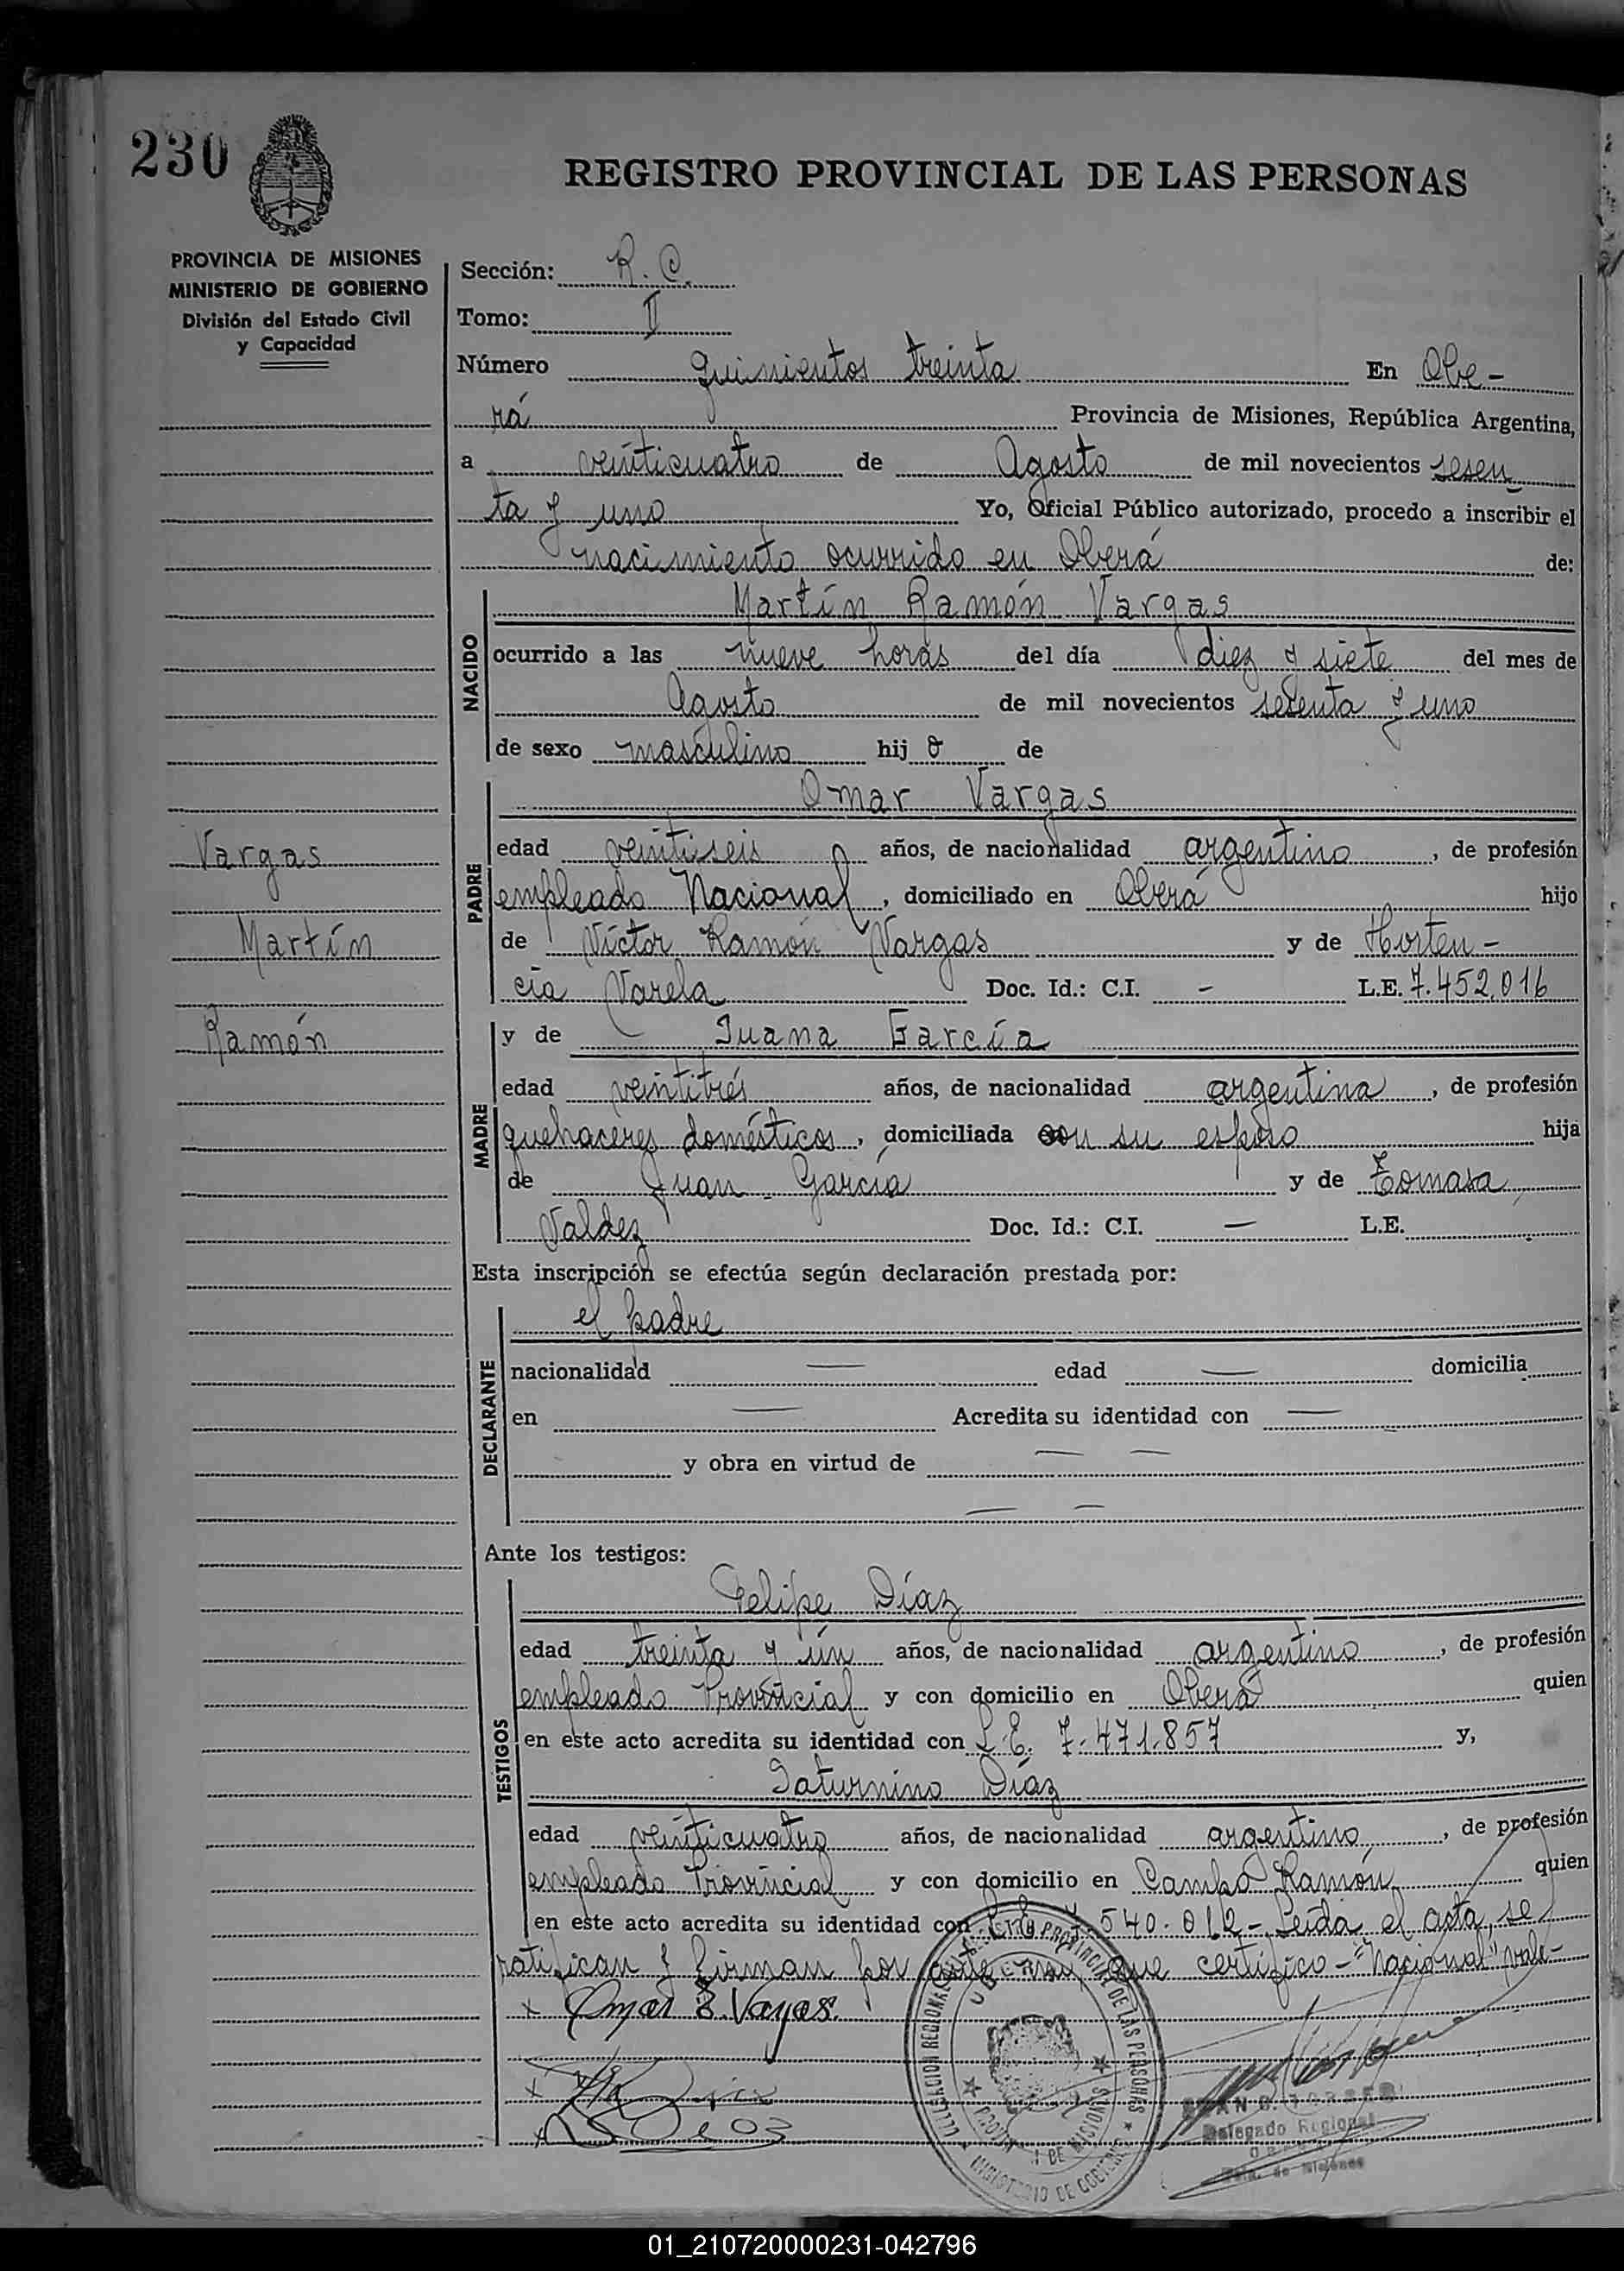 230
REGISTRO PROVINCIAL DE LAS PERSONAS
PROVINCIA DE MISIONES
MINISTERIO DE GOBIERNO
División del Estado Civil
y Capacidad
Sección: R. C.
Tomo: II
Número quinientos treinta En Obe-
rá Provincia de Misiones, República Argentina,
a veinticuatro de Agosto de mil novecientos sesen
ta y uno Yo, Oficial Público autorizado, procedo a inscribir el
nacimiento ocurrido en Oberá de:
NACIDO
Martín Ramón Vargas
ocurrido a las nueve horas del día diez y siete del mes de
Agosto de mil novecientos sesenta y uno
de sexo masculino hij o de
PADRE
Omar Vargas
edad veintiseis años, de nacionalidad argentino, de profesión
empleado Nacional, domiciliado en Oberá hijo
de Víctor Ramón Vargas y de Horten-
cia Varela Doc. Id.: C.I. - L.E. 7.452.016
Vargas
Martín
Ramón
MADRE
y de Juana García
edad veintitrés años, de nacionalidad argentina, de profesión
quehaceres domésticos, domiciliada con su esposo hija
de Juan García y de Tomasa
Valdez Doc. Id.: C.I. — L.E.
Esta inscripción se efectúa según declaración prestada por:
DECLARANTE
el padre
nacionalidad — edad — domicilia
en — Acredita su identidad con —
y obra en virtud de — —
— —
Ante los testigos:
TESTIGOS
Felipe Díaz
edad treinta y ún años, de nacionalidad argentino, de profesión
empleado Provincial y con domicilio en Oberá quien
en este acto acredita su identidad con L.E. 7.471.857 y,
Saturnino Díaz
edad veinticuatro años, de nacionalidad argentino, de profesión
empleado Provincial y con domicilio en Campo Ramón quien
en este acto acredita su identidad con L.E. 7.540.012- Leída el acta, se
ratifican y firman por ante mi, que certifico - "Nacional" vale-
x Omar E. Vargas.
DELEGACION REGIONAL REGISTRO PROVINCIAL DE LAS PERSONAS
OBERA
MINISTERIO DE GOBIERNO
Delegado Regional
Pcia. de Misiones
01_210720000231-042796